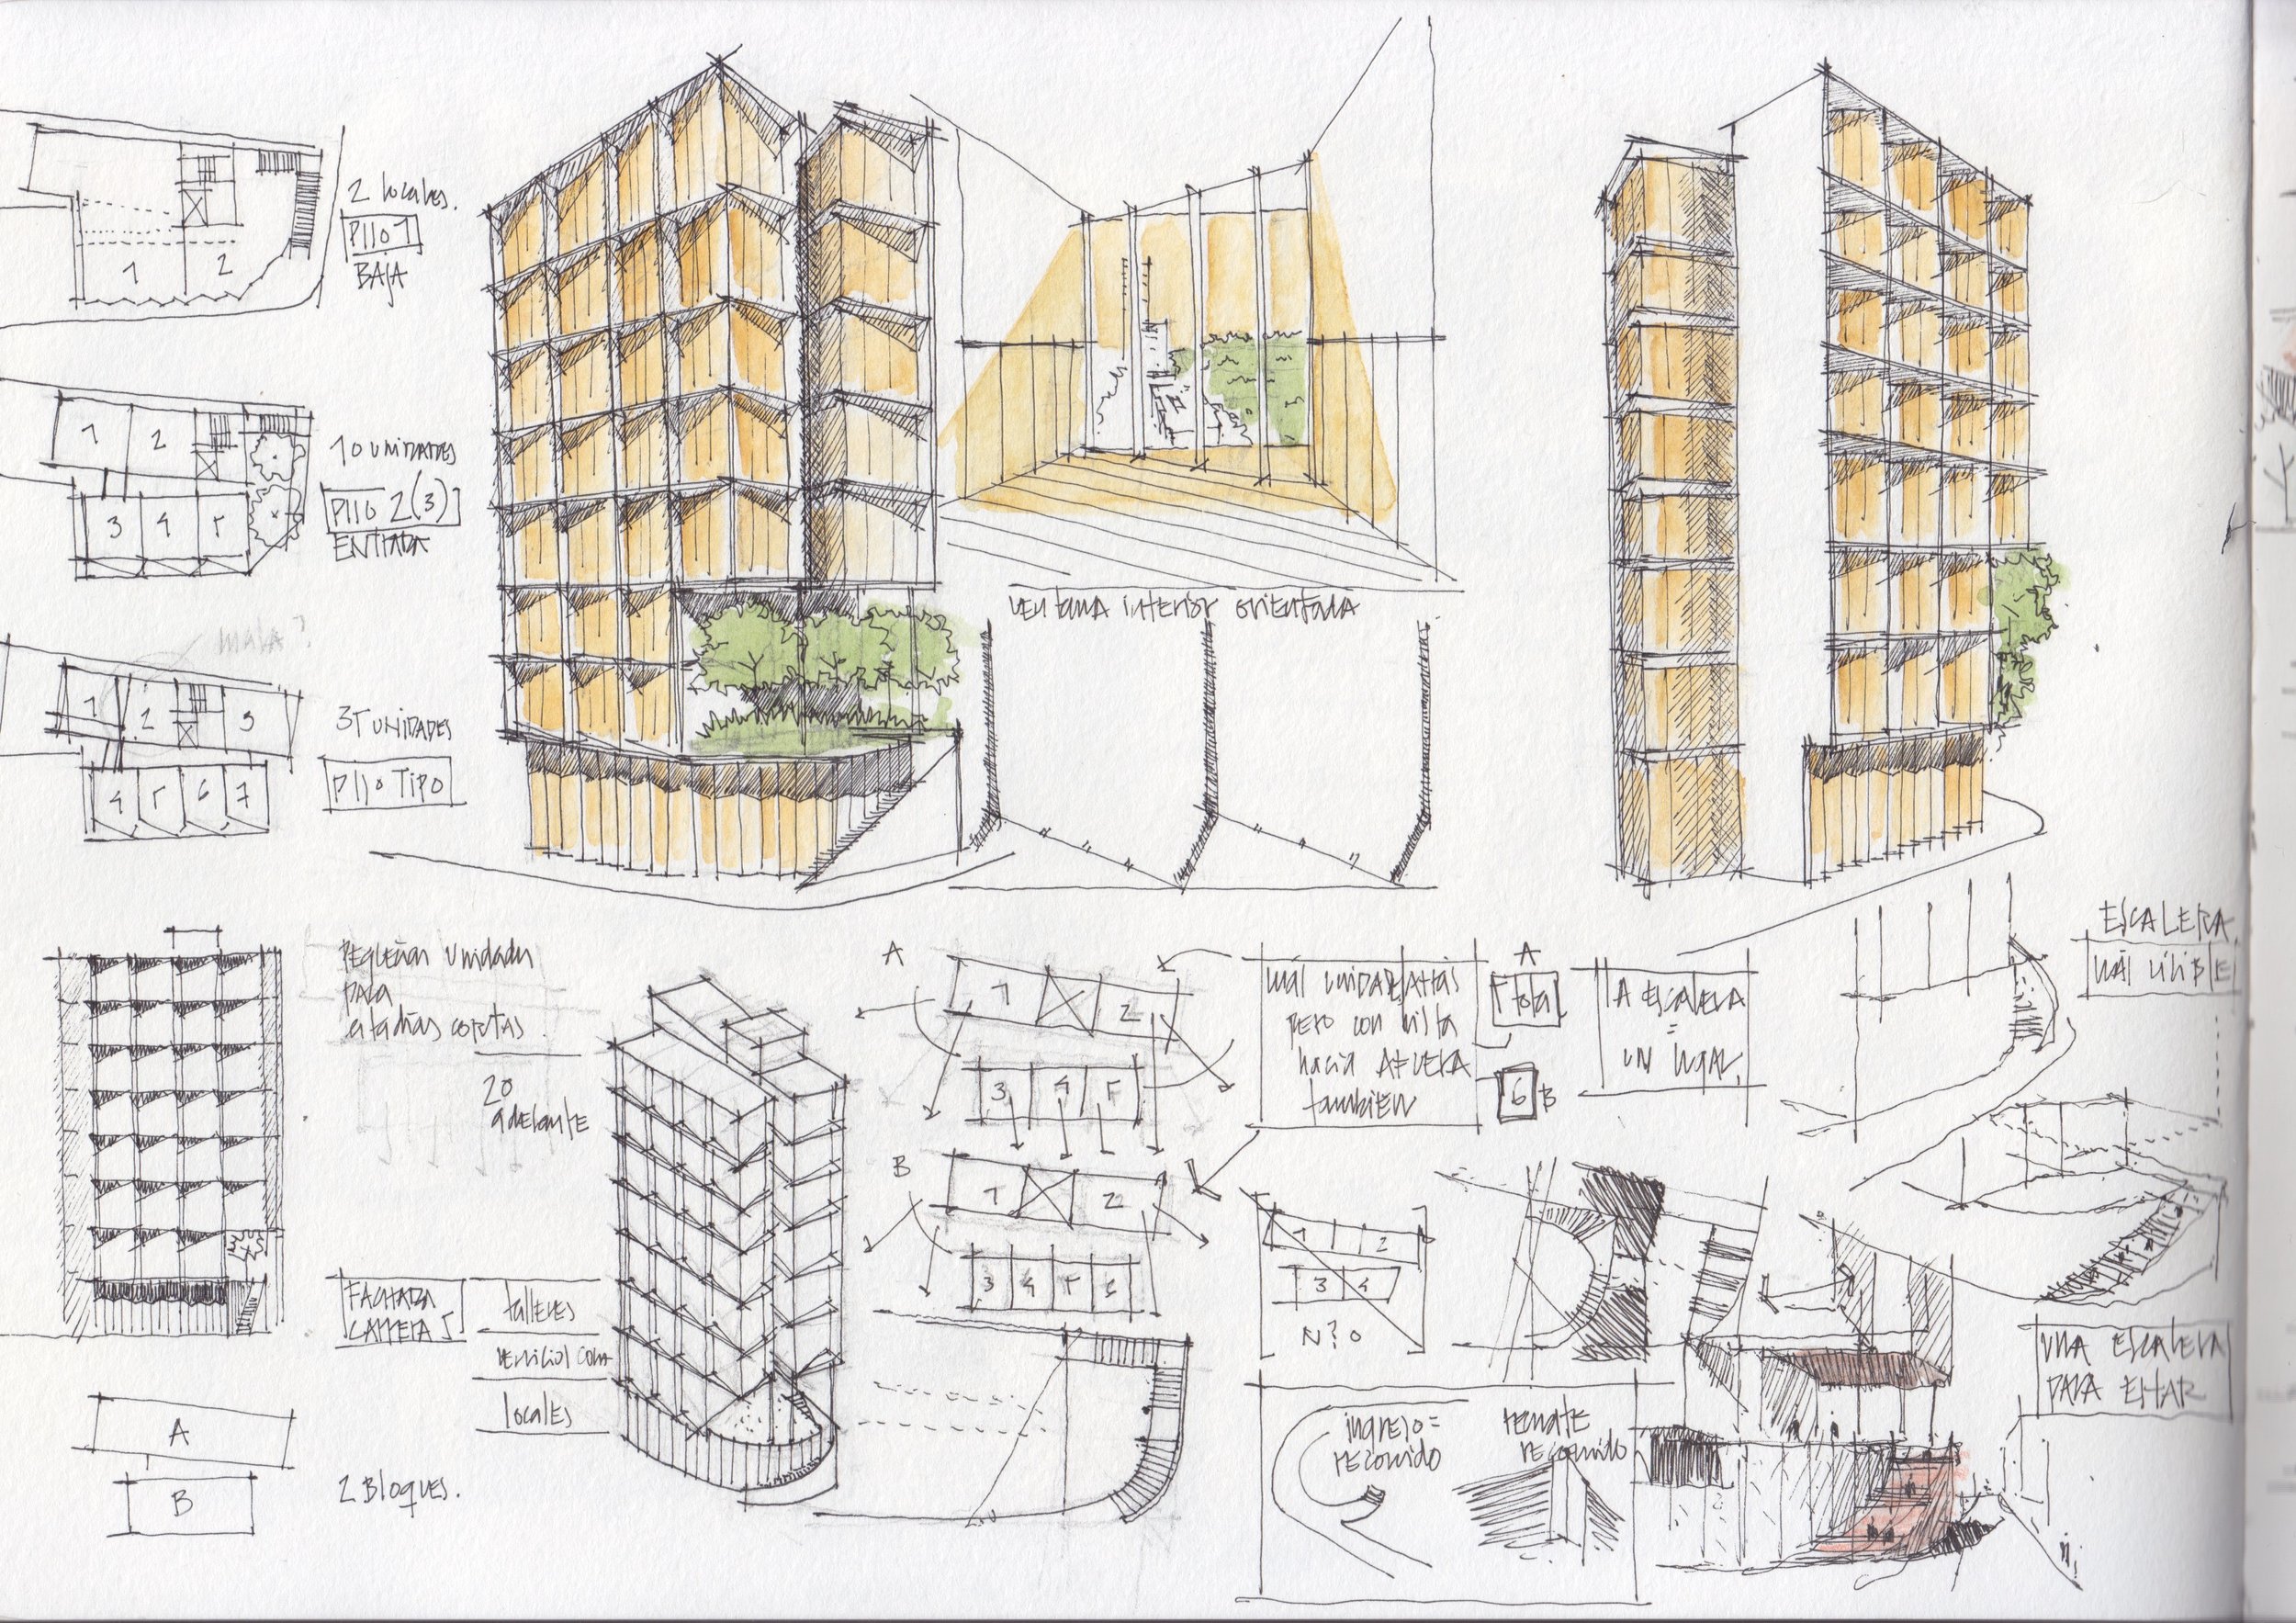 2 locales.
PIso 1
BAJA
1 2
10 UNIDADES
PIso 2(3)
ENTRADA
1 2
3 4 5
mala?
35 UNIDADES
PIso TIPO
1 2 3
4 5 6 7
ventana interior orientada
PEQUEñas UNIDADES
PARA
estadías cortas.
20
adelante
FACHADA
CARRERA 5
talleres
servicios com
locales
A
B
2 Bloques.
A
1 2
3 4 5
B
1 2
3 4 5 6
más unidades atrás
pero con vista
hacia AFUERA
también
A
5 total
6 B
1 2
3 4
N?o
LA ESCALERA
=
UN lugar
ESCALERA
MÁS VISIBLE
UNA ESCALERA
PARA ESTAR
ingreso=
recorrido
remate
recorrido